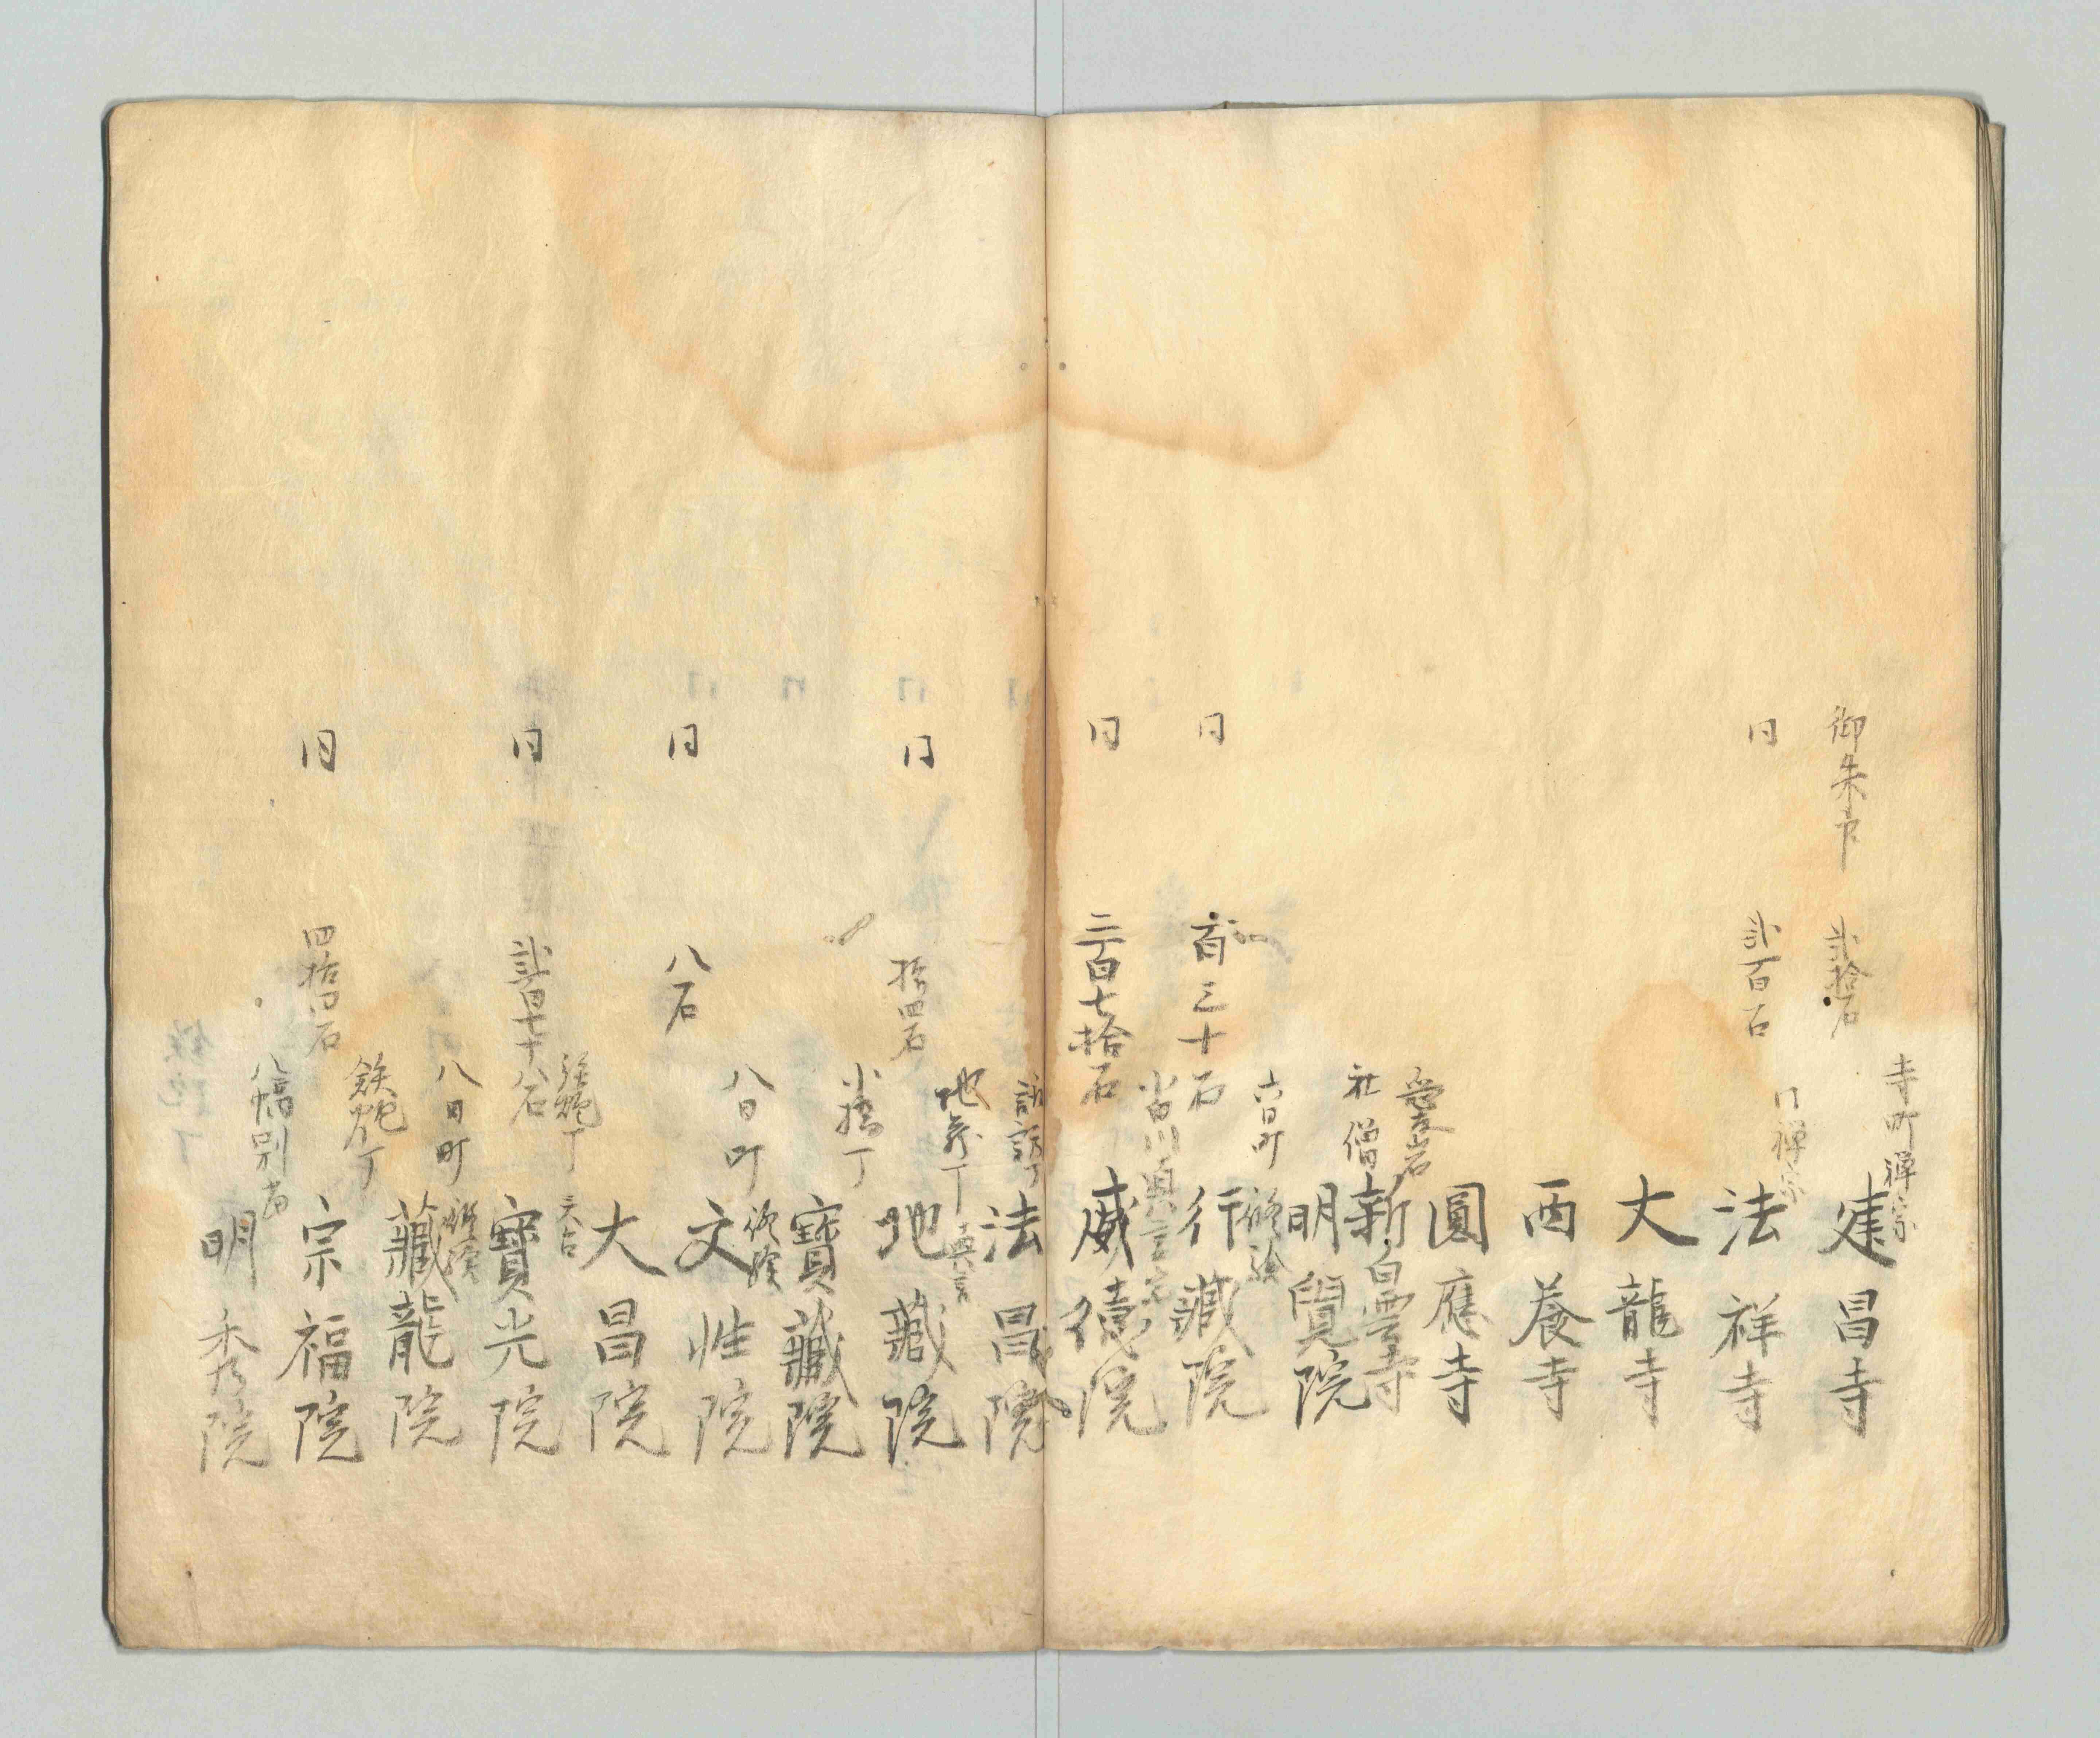 御朱印 弐拾石 寺町禅宗 建昌寺
同 弐百石 同禅宗 法祥寺
大龍寺
西養寺
圓應寺
愛宕
社僧 新白雲寺
明覺院
六日町 修験
同 百三十石 行藏院
小白川真言宗
同 三百七拾石 威徳院
諏訪丁 法昌院
地蔵丁 真言
同 拾四石 地藏院
小橋丁 寶藏院
八日町 修験
同 八石 文性院
大昌院
鉄炮丁 天台
同 弐百七十八石 寶光院
八日町 修験 藏龍院
鉄炮丁
同 四拾石 宗福院
八幡別当 明秀院